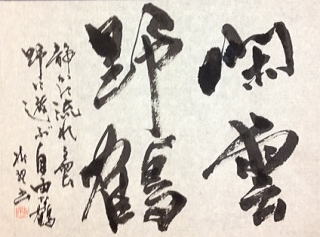 閑雲
野鶴
静かに流れる雲
野に遊ぶ自由な鶴